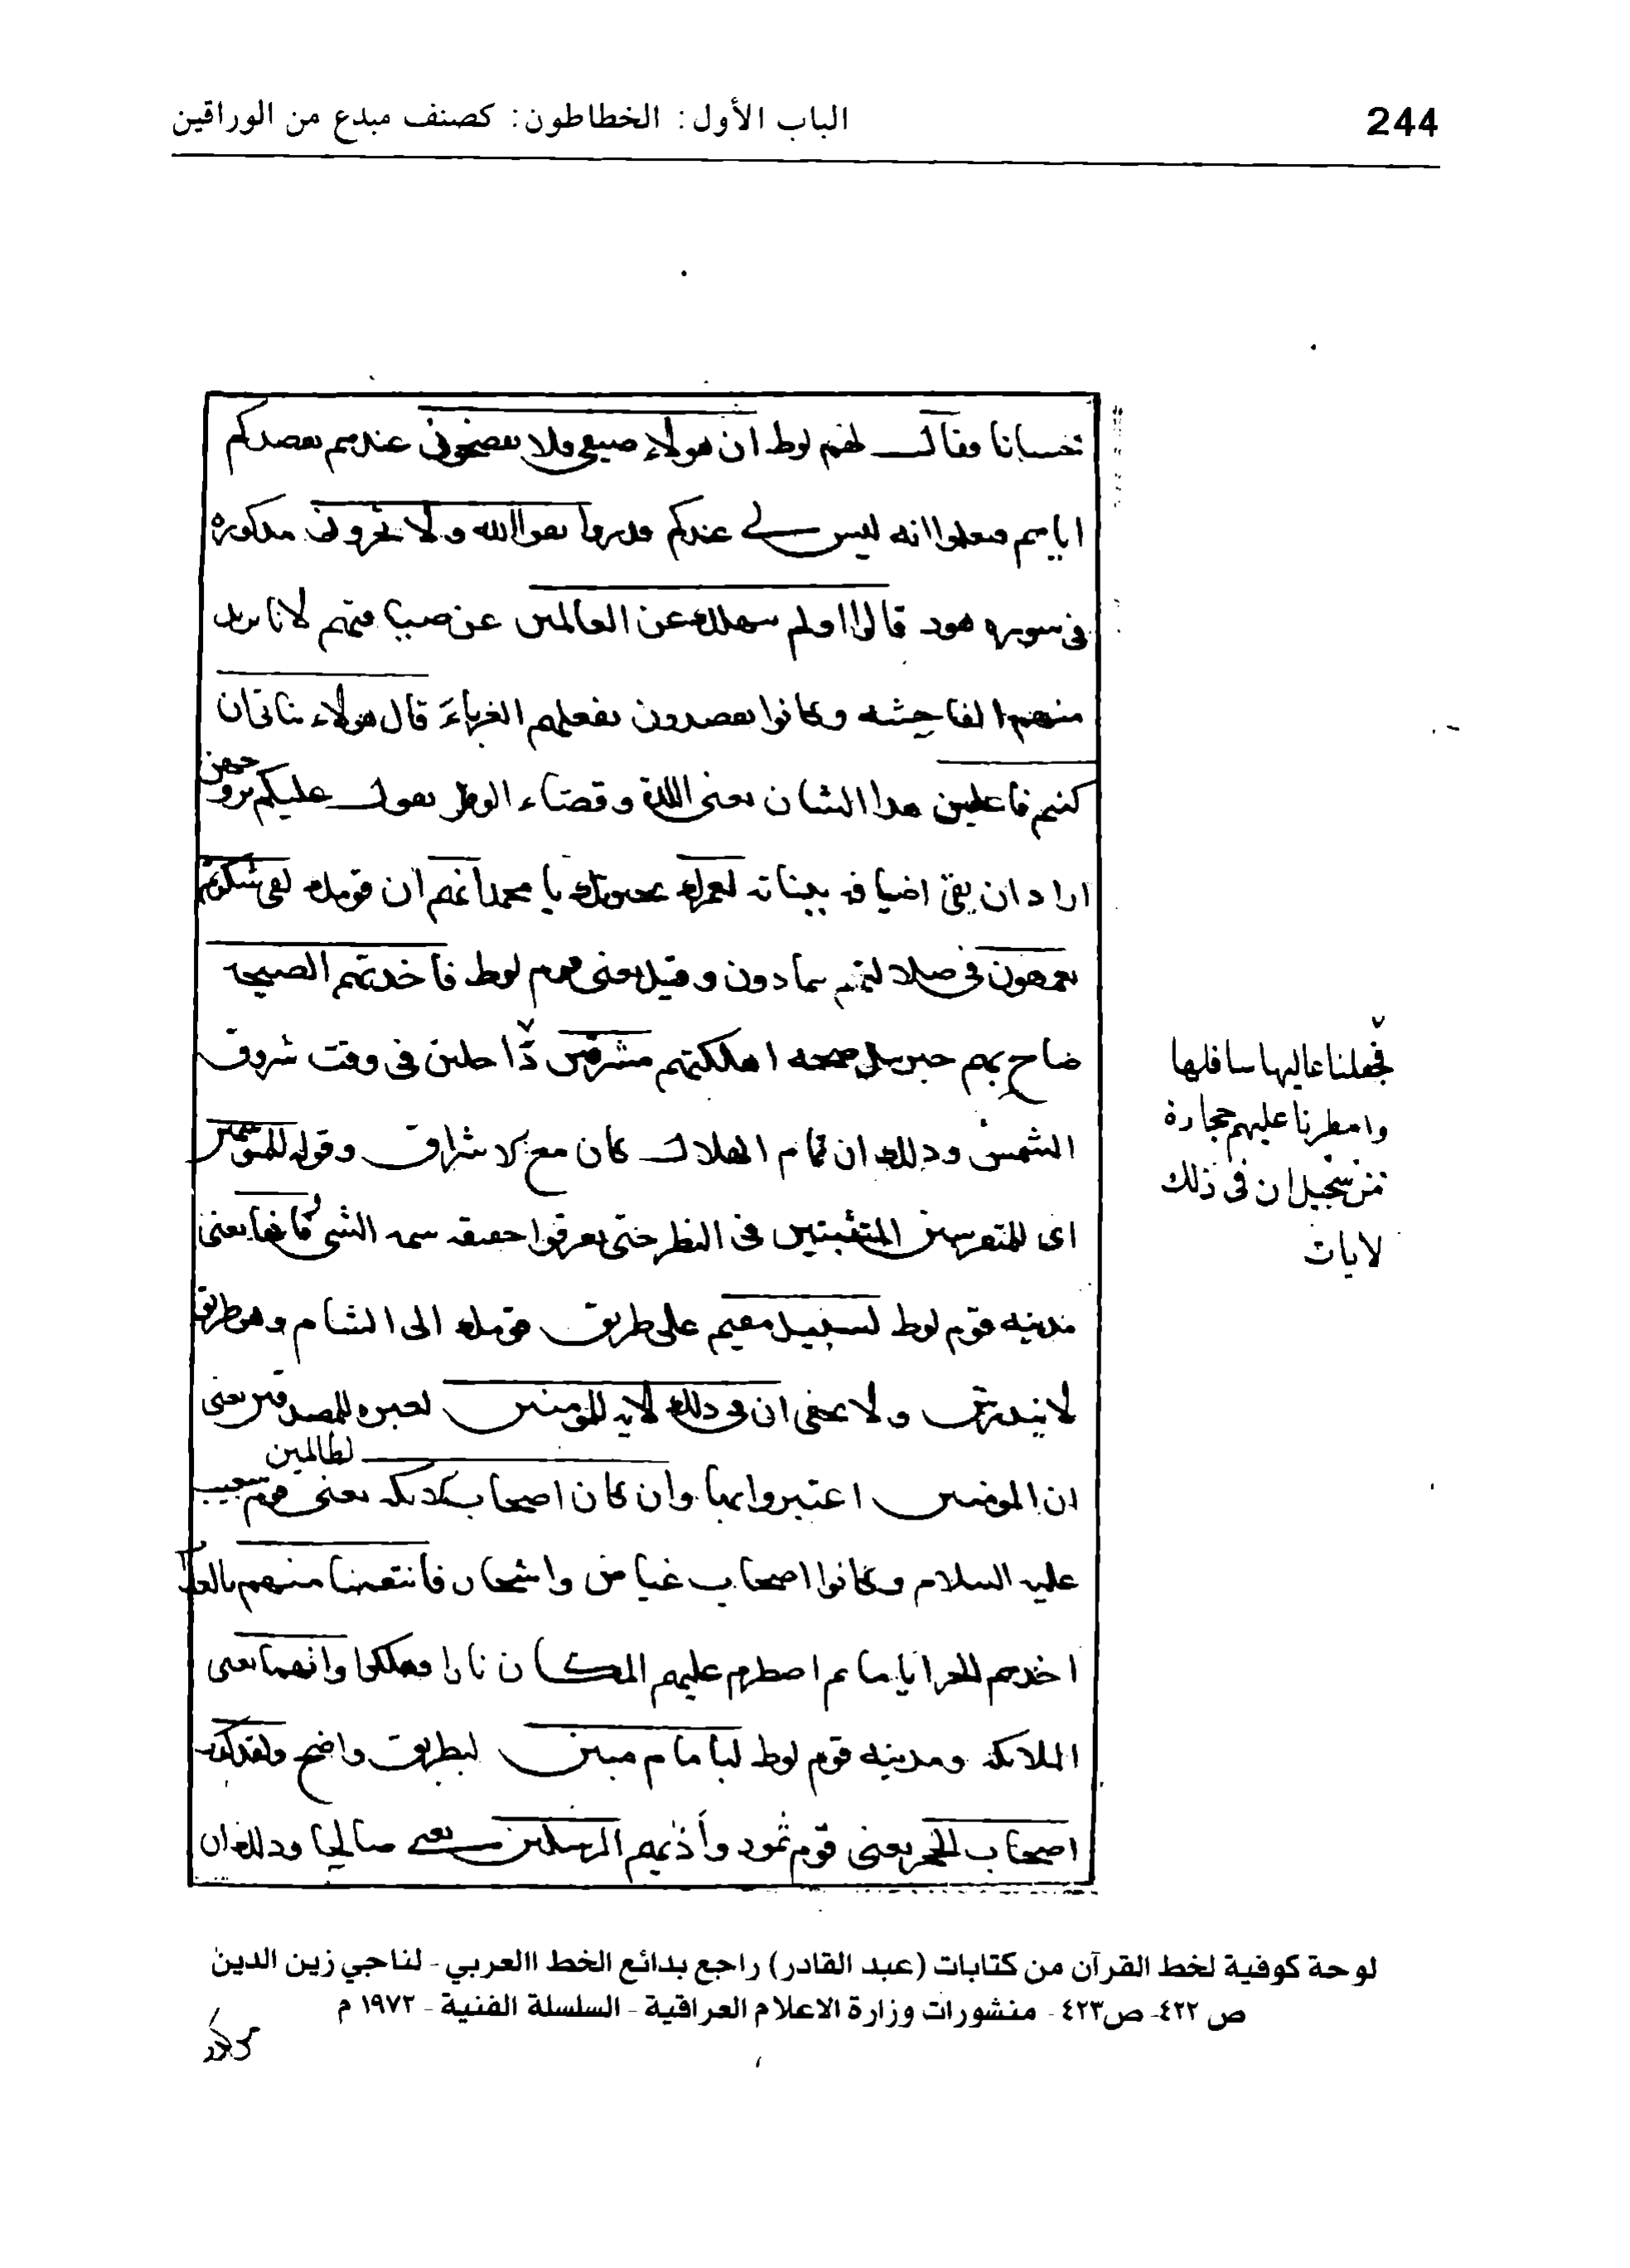 244
الباب الأول: الخطاطون: كصنف مبدع من الوراقين
فقال لهم لوط ان هولاء ضيفي فلا تفضحون عندهم بقصدكم
اياهم فيعلموا انه ليس لي عندكم قدر واتقوا الله ولا تخزون مذكورة
في سوره هود قالوا اولم ننهك عن العالمين عن ضيافتهم لانا نريد
منهم الفاحشه وكانوا يقصدون بفعلهم الغرباء قال هولاء بناتي ان
كنتم فاعلين هذا الشان يعني اللذة وقضاء الوطر يقول عليكم بتزوجهن
اراد ان يقي اضيافه ببناته لعمرك بحيوتك يا محمد انهم ان قومك لفي سكرتهم
يعمهون في ضلالتهم يتمادون وقيل يعني قوم لوط فاخذتهم الصيحه
صاح بهم جبريل صيحه اهلكتهم مشرقين داخلين في وقت شروق
الشمس وذلك ان تمام الهلاك كان مع الاشراق وقوله للمتوسمين
اى للمتفرسين المتثبتين في النظر حتى يعرفوا حقيقه سمه الشي وانها يعني
مدينه قوم لوط لبسبيل مقيم على طريق قومك الى الشام وهو طريق
لا يندرس ولا يخفى ان في ذلك لايه للمومنين لعبره للمصدقين يعني
ان المومنين اعتبروا بها وان كان اصحاب الايكه لظالمين يعني قوم شعيب
عليه السلام وكانوا اصحاب غياض واشجار فانتقمنا منهم بالعذاب
اخذهم الحر اياما ثم اضطرم عليهم المكان نارا فهلكوا وانهما يعني
الايكه ومدينه قوم لوط لبامام مبين لبطريق واضح ولقد كذب
اصحاب الحجر يعني قوم ثمود المرسلين يعني صالحا وذلك ان
فجعلنا عاليها سافلها
وامطرنا عليهم حجارة
من سجيل ان في ذلك
لايات
لوحة كوفية لخط القرآن من كتابات (عبد القادر) راجع بدائع الخط االعربي - لناجي زين الدين
ص ٤٢٢- ص٤٢٣ - منشورات وزارة الاعلام العراقية - السلسلة الفنية - ١٩٧٢ م